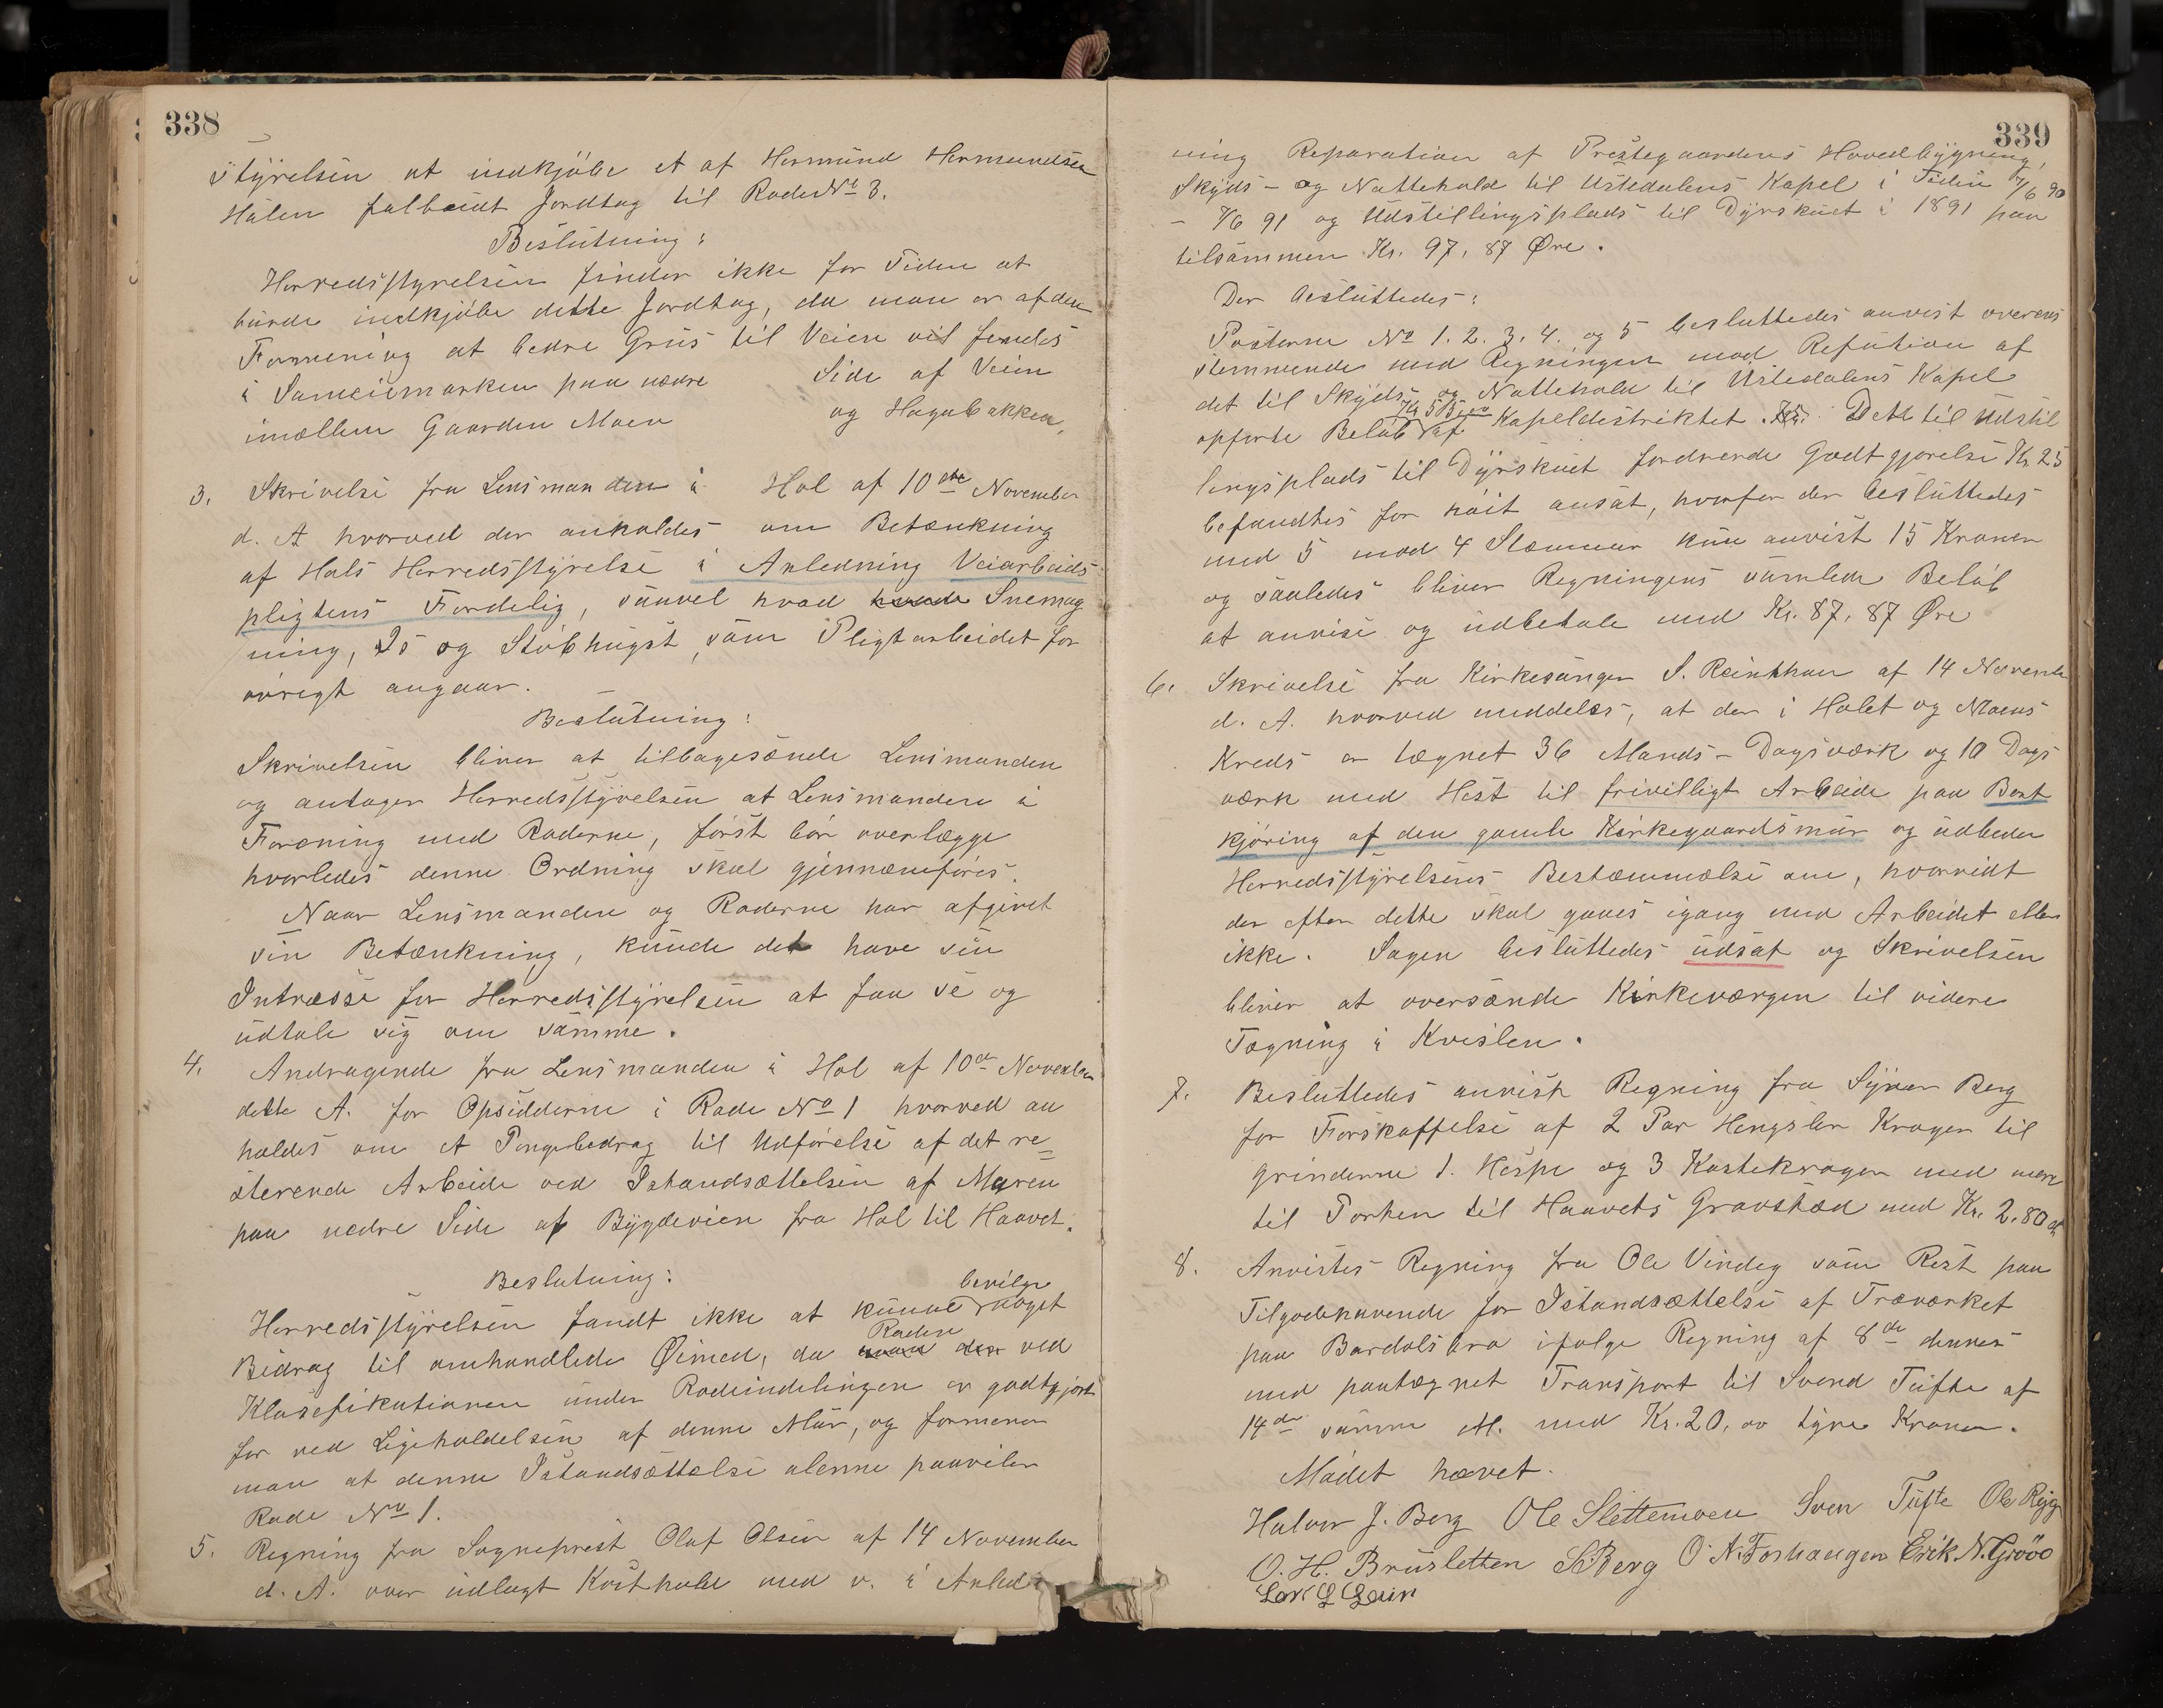 338
styrelsen at indkjøbe et af Hermund Hermundsen
Hølen falbudt Jordtag til Rode No 3.
Beslutning:
Herredsstyrelsen finder ikke for Tiden at
burde indkjøbe dette Jordtag, da man er af den
Formening at bedre Grus til Veien vil findes
i Sameiemarken paa nedre Side af Veien
imellem Gaarden Moen og Hagabakken,
3. Skrivelse fra Lensmanden i Hol af 10de November
d. A hvorved der anholdes om Betænkning
af Hols Herredsstyrelse i Anledning Veiarbeids
pligtens Fordelig, saavel hvad Snemog
ning, Is og Stóbhugst, som Pligtarbeidet for
øvrigt angaar.
Beslutning:
Skrivelsen bliver at tilbagesænde Lensmanden
og antager Herredsstyrelsen at Lensmanden i
Forening med Roderne, først bør overlægge
hvorledes denne Ordning skal gjennæmføres.
Naar Lensmanden og Roderne har afgivet
sin Betænkning, kunde det have sin
Intræsse for Herredsstyrelsen at faa se og
udtale sig om samme.
4. Andragende fra Lensmanden i Hol af 10de November
dette A. for Opsidderne i Rode No 1 hvorved an
holdes om et Pengebedrag til Udførelse af det re=
sterende Arbeide ved Istandsættelsen af Muren
paa nedre Side af Bygdeveien fra Hol til Haavet.
Beslutning:
Herredsstyrelsen fandt ikke at kunne bevilge noget
Bidrag til omhandlede Øimed, da Roden ved
Klassefikationen under Rodeindelingen er godtgjort
for ved Ligeholdelsen af denne Mur, og formener
man at denne Istandsættelse alenne paaviler
Rode No 1.
5. Regning fra Sogneprest Olaf Olsen af 14 November
d. A. over udlagt Kosthold med v. i Anled
339
ning Reparation af Prestegaardens Hovedbygning,
Skyds- og Nattehold til Ustedalens Kapel i Tiden 7/6 90
- 7/6 91 og Udstillingsplads til Dyrskuet i 1891 paa
tilsammen Kr. 97,87 Øre.
Der besluttedes:
Posterne No 1. 2. 3. 4. og 5 besluttedes anvist overens
stemmende med Regningen mod Refution af
det til Skyds og Nattehold til Ustedalens Kapel
opførte Beløb af Kapeldistriktet. Dett til Udstil
lingsplads til Dyrskuet fordrende Godtgjørelse Kr 25
befandtes for høit ansat, hvorfor der besluttedes
med 5 mod 4 Stemmer kun anvist 15 Kroner
og saaledes bliver Regningens samlede Beløb
at anvise og udbetale med Kr. 87,87 Øre
6. Skrivelse fra Kirkesanger S. Reinthon af 14 Novembr
d. A. hvorved meddeles, at der i Holet og Moens
Kreds er tegnet 36 Mands-Dagsværk og 10 Dags
værk med Hest til frivilligt Arbeide paa Bort
kjøring af den gamle Kirkegaardsmur og udbeder
Herredsstyrelsens Bestæmmelse om, hvorvidt
der efter dette skal gaaes igang med Arbeidet eller
ikke. Sagen besluttedes udsat og Skrivelsen
bliver at oversænde Kirkeværgen til videre
Tegning i Kvislen.
7. Besluttedes anvist Regning fra Syver Berg
for Forskaffelse af 2 Par Hengsler Kroger til
grinderne 1. Hespe og 3 Kastekroger med mere
til Porten til Haavets Gravstæd med Kr. 2.80
8. Anvistes Regning fra Ole Vindeg som Rest paa
Tilgodehavende for Istandsættelse af Træværket
paa Bardøls bro ifølge Regning af 8de dennes
med paategnet Transport til Svend Tufte af
14de samme M. med Kr. 20,00 tyve Kroner.
Mødet hævet.
Halvor J. Berg Ole Slettemoen Sven Tufte Ole Rygg
O. H. Brusletten S Berg O. N. Forhaugen Erik N. Grøvo
Lars L